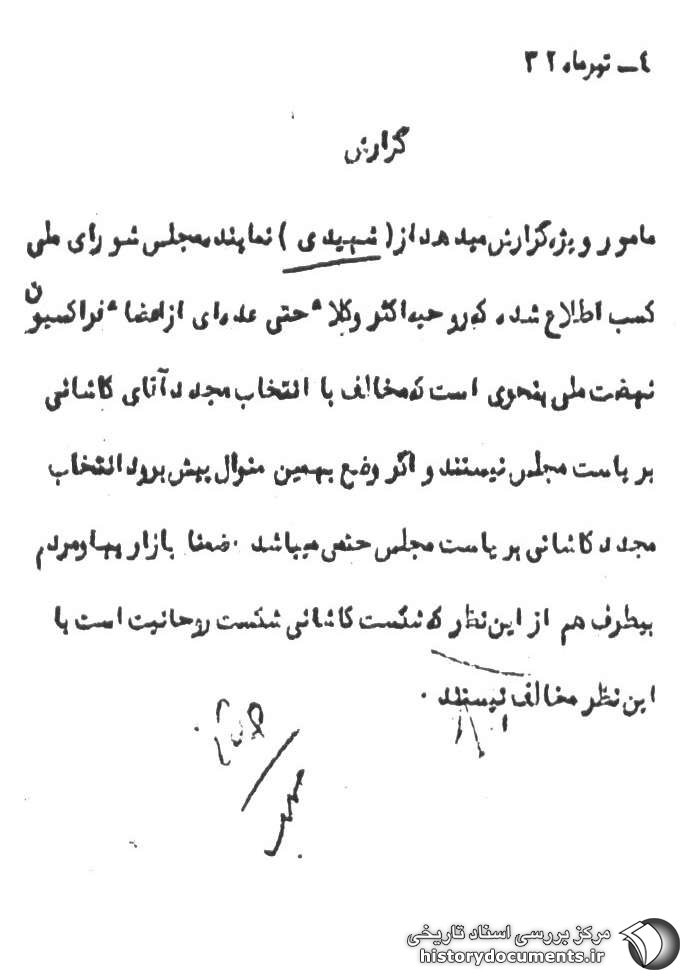 ٤ــ تیرماه ۳۲
گزارش
مامور ویژه گزارش میدهد از ( شهیدی ) نماینده مجلس شورای ملی
کسب اطلاع شده که روحیه اکثر وکلاء حتی عده‌ای از اعضاء فراکسیون
نهضت ملی بنحوی است که مخالف با انتخاب مجدد آقای کاشانی
بریاست مجلس نیستند و اگر وضع بهمین منوال پیش برود انتخاب
مجدد کاشانی بریاست مجلس حتمی میباشد . ضمنا بازار یها و مردم
بیطرف هم از این نظر که شکست کاشانی شکست روحانیت است با
این نظر مخالف نیستند .
مرکز بررسی اسناد تاریخی
historydocuments.ir